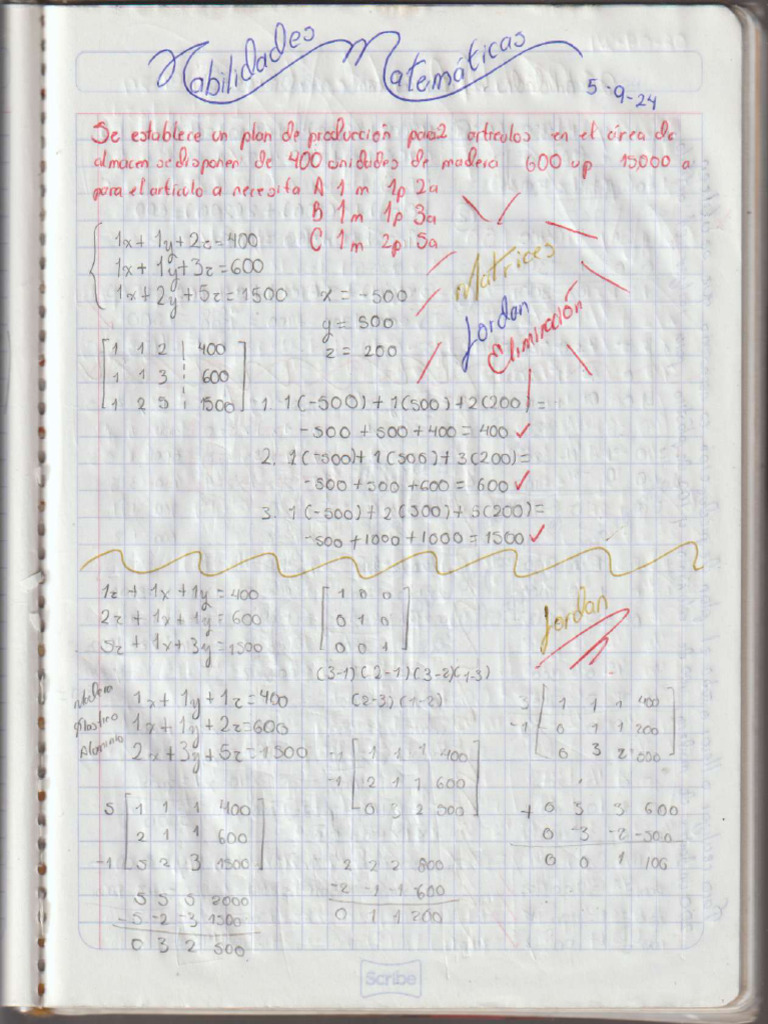 Habilidades Matemáticas
5-9-24
Se establece un plan de producción para 2 articulos en el área de
almacen se disponen de 400 unidades de madera 600 up 15,000 a
para el articulo a necesita A 1m 1p 2a
B 1m 1p 3a
C 1m 2p 5a
1x + 1y + 2z = 400
1x + 1y + 3z = 600
1x + 2y + 5z = 1500
x = -500
y = 500
z = 200
Matrices
Jordan
Eliminación
1 1 2 400
1 1 3 600
1 2 5 1500
1. 1(-500) + 1(500) + 2(200) =
-500 + 500 + 400 = 400 ✓
2. 1(-500) + 1(500) + 3(200) =
-500 + 500 + 600 = 600 ✓
3. 1(-500) + 2(500) + 5(200) =
-500 + 1000 + 1000 = 1500 ✓
1z + 1x + 1y = 400
2z + 1x + 1y = 600
5z + 1x + 3y = 1500
1 0 0
0 1 0
0 0 1
Jordan
(3-1)(2-1)(3-2)(1-3)
(2-3)(1-2)
Madera 1x + 1y + 1z = 400
Plastico 1x + 1y + 2z = 600
Aluminio 2x + 3y + 5z = 1500
5 1 1 1 400
2 1 1 600
-1 5 2 3 1500
5 5 5 2000
-5 -2 -3 1500
0 3 2 500
-1 1 1 1 400
-1 2 1 1 600
0 3 2 500
2 2 2 800
-2 -1 -1 600
0 1 1 200
3 1 1 1 400
-1 0 1 1 200
0 3 2
+ 0 3 3 600
0 -3 -2 -500
0 0 1 100
Scribe